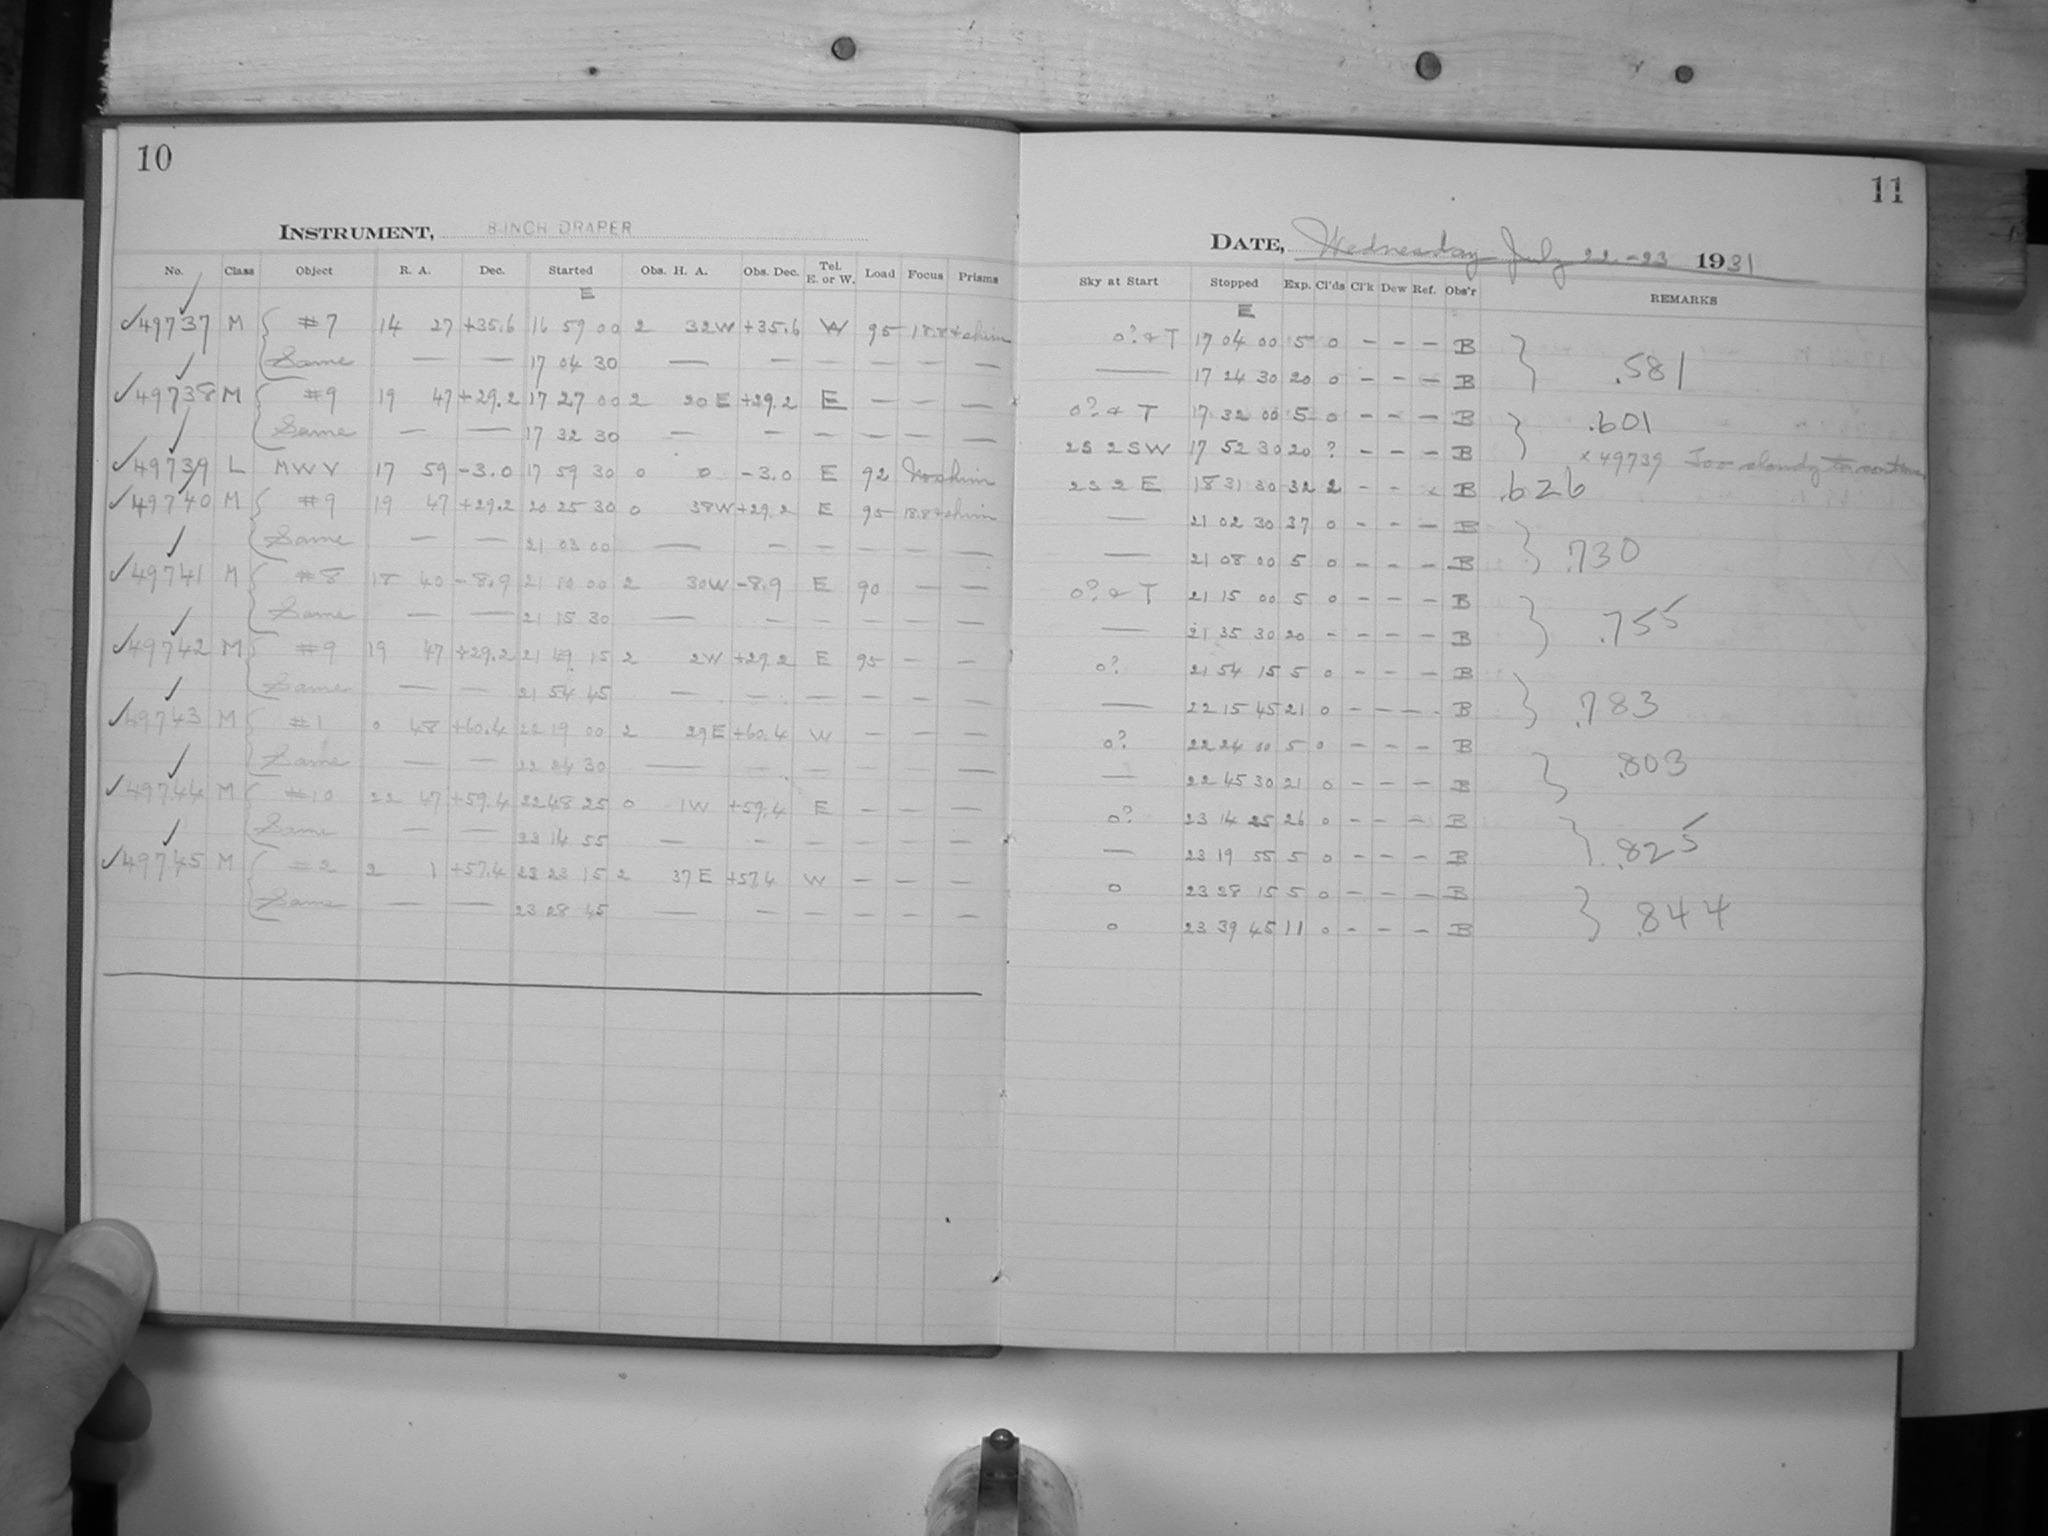 10
INSTRUMENT, 8 INCH DRAPER
No. Class Object R. A. Dec. Started Obs. H. A. Obs. Dec. Tel. E. or W. Load Focus Prisms
E
✓49737 M { #7 14 27 +35.6 16 59 00 2 32W +35.6 W 95 18.8+shim
Same — — 17 04 30 — — — — — —
✓49738 M { #9 19 47 +29.2 17 27 00 2 20 E +29.2 E — — —
Same — — 17 32 30 — — — — — —
✓49739 L MWV 17 59 -3.0 17 59 30 0 0 -3.0 E 92 No shim
✓49740 M { #9 19 47 +29.2 20 25 30 0 38W +29.2 E 95 18.8+shim
Same — — 21 03 00 — — — — — —
✓49741 M { #8 18 40 -8.9 21 10 00 2 30W -8.9 E 90 — —
Same — — 21 15 30 — — — — — —
✓49742 M { #9 19 47 +29.2 21 49 15 2 2W +29.2 E 95 — —
Same — — 21 54 45 — — — — — —
✓49743 M { #1 0 48 +60.4 22 19 00 2 29E +60.4 W — — —
Same — — 22 24 30 — — — — — —
✓49744 M { #10 22 47 +59.4 22 48 25 0 1W +59.4 E — — —
Same — — 23 14 55 — — — — — —
✓49745 M { #2 2 1 +57.4 23 23 15 2 37 E +57.4 W — — —
Same — — 23 28 45 — — — — — —
11
DATE, Wednesday July 22-23 1931
Sky at Start Stopped Exp. Cl'ds Cl'k Dew Ref. Obs'r REMARKS
E
0? & T 17 04 00 5 0 - - - B
— 17 24 30 20 0 - - - B } .581
0? & T 17 32 00 5 0 - - - B } .601
2S 2SW 17 52 30 20 ? - - - B x 49739 Too cloudy to continue
2S 2 E 18 31 30 32 2 - - x B .626
— 21 02 30 37 0 - - - B
— 21 08 00 5 0 - - - B } .730
0? & T 21 15 00 5 0 - - - B
— 21 35 30 20 - - - - B } .755
0? 21 54 15 5 0 - - - B
— 22 15 45 21 0 - - - B } .783
0? 22 24 00 5 0 - - - B
— 22 45 30 21 0 - - - B } .803
0? 23 14 25 26 0 - - - B
— 23 19 55 5 0 - - - B } .825
0 23 28 15 5 0 - - - B
0 23 39 45 11 0 - - - B } .844